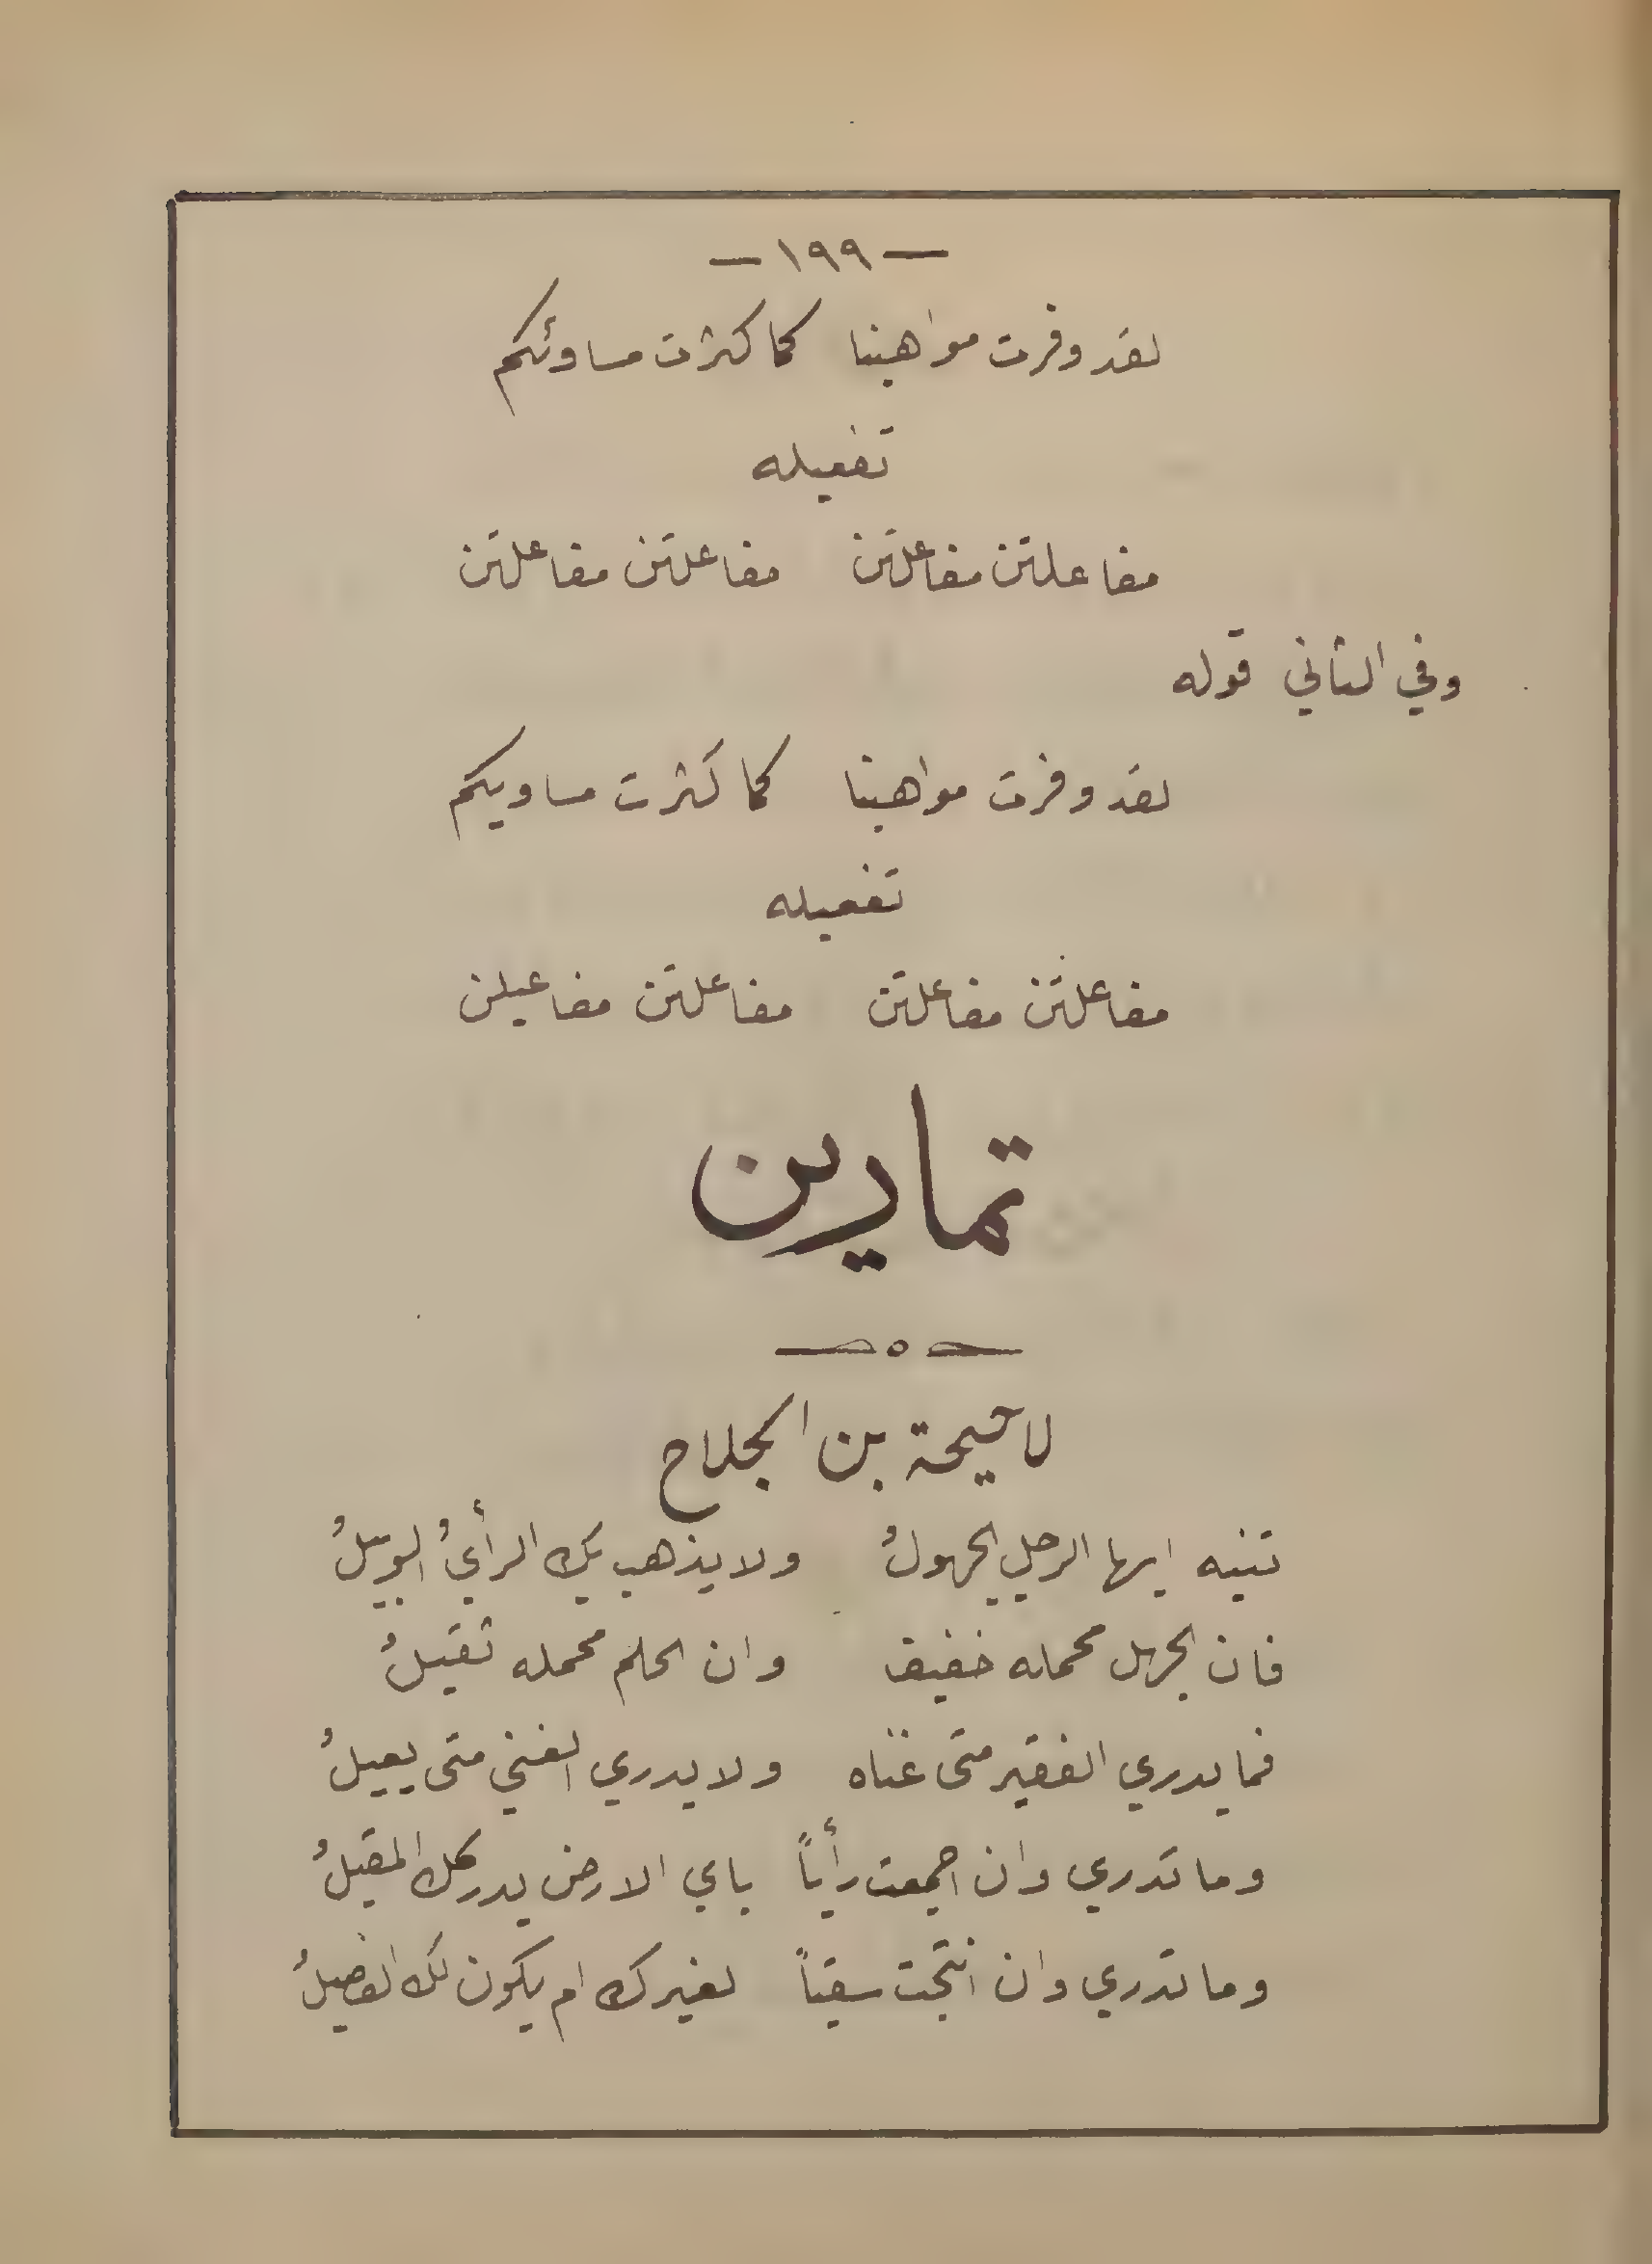 — ١٩٩ —
لقد وفرت مواهبنا كما كثرت مساوئكم
تفعيله
مفاعلتن مفاعلتن مفاعلتن مفاعلتن
وفي الثاني قوله
لقد وفرت مواهبنا كما كثرت مساويكم
تفعيله
مفاعلتن مفاعلتن مفاعلتن مفاعيلن
تمارين
لاحيحة بن الجلاح
تنبه ايها الرجل الجهولُ ولا يذهب بك الرأيُ الوبيلُ
فان الجهل محمله خفيف وان الحلم محمله ثقيلُ
فما يدري الفقير متى غناه ولا يدري الغني متى يعيلُ
وما تدري وان اجمعت رأياً باي الارض يدركك المقيلُ
وما تدري وان انتجت سقباً لغيرك ام يكون لك الفصيلُ